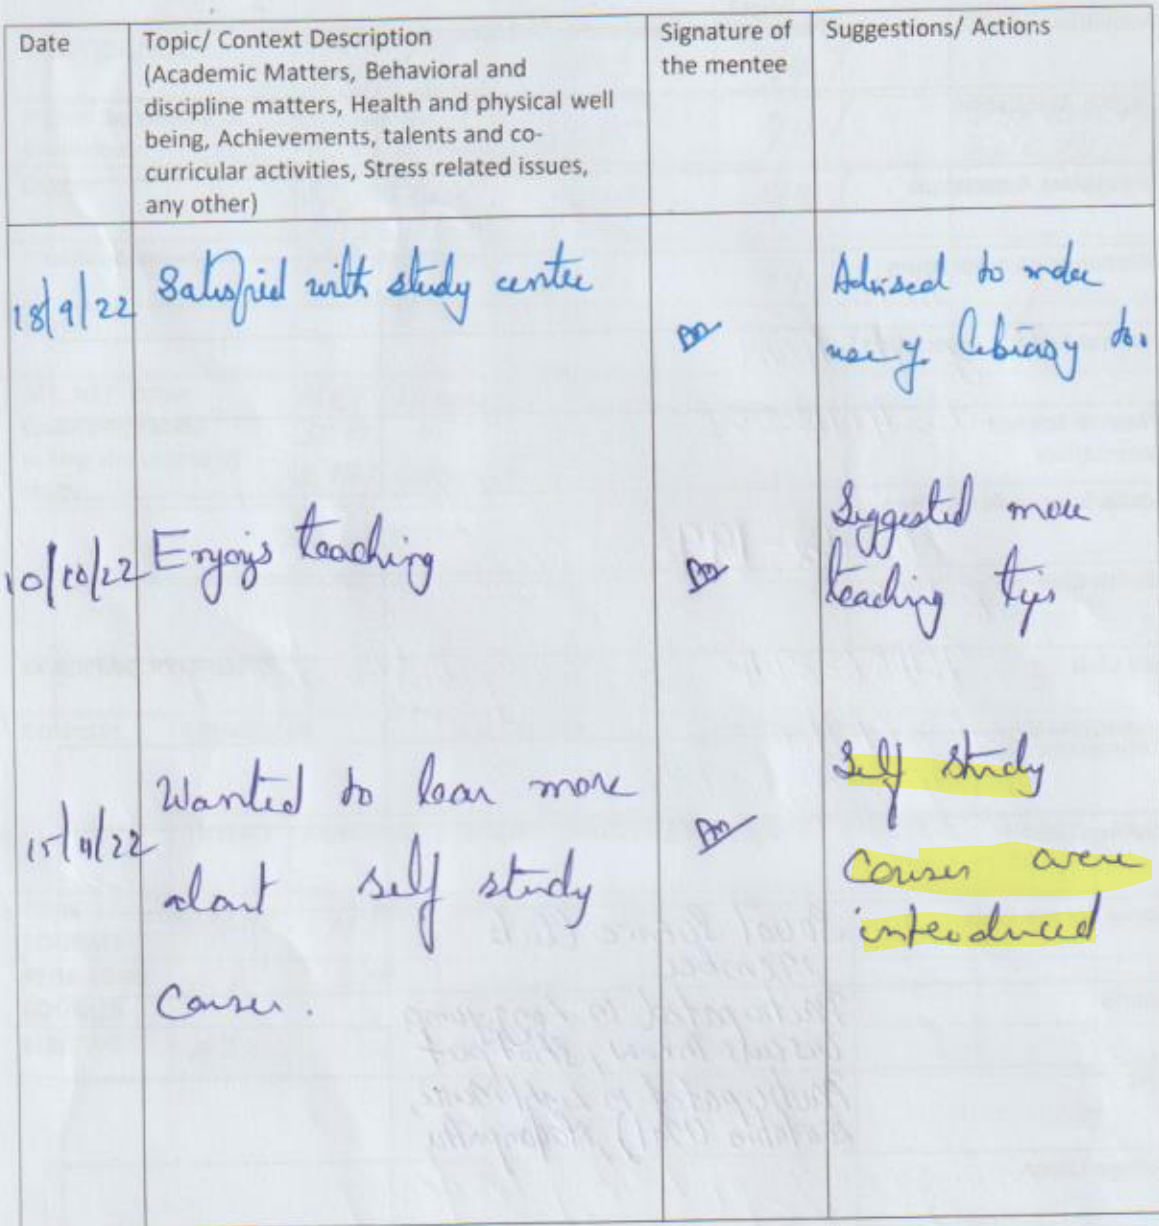 Date
Topic/ Context Description
(Academic Matters, Behavioral and
discipline matters, Health and physical well
being, Achievements, talents and co-
curricular activities, Stress related issues,
any other)
Signature of
the mentee
Suggestions/ Actions
18/9/22
Satisfied with study centre
Advised to make
use of library
10/10/22
Enjoys teaching
Suggested more
teaching tips
15/11/22
Wanted to lear more
about self study
Courses.
Self study
Courses were
introduced